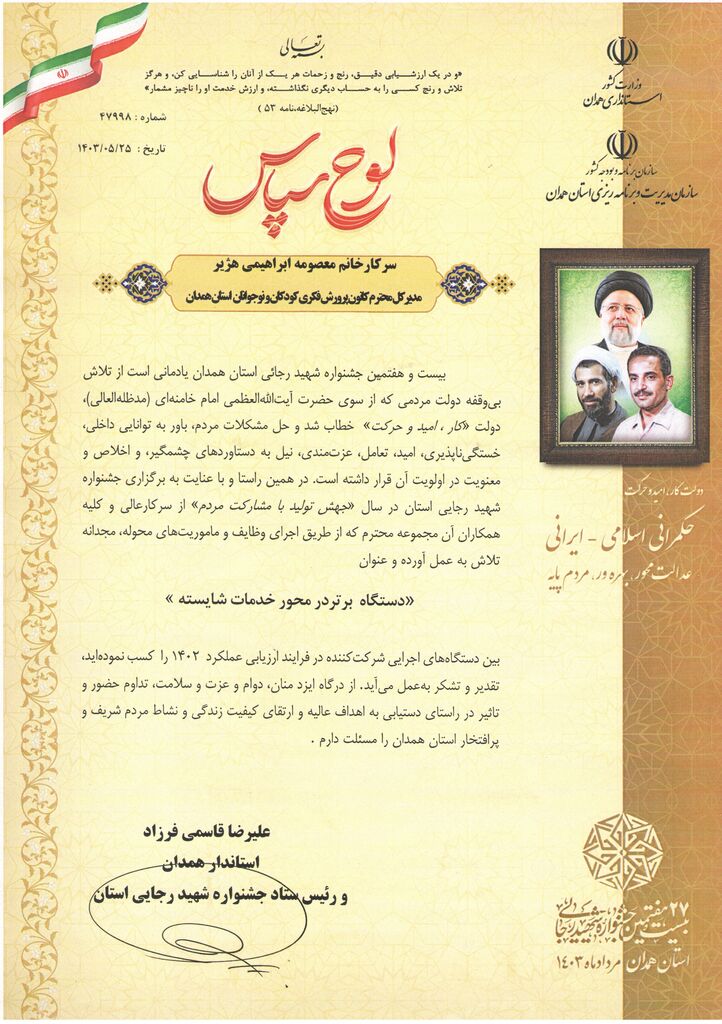 بسمه تعالی
«و در یک ارزشیابی دقیق، رنج و زحمات هر یک از آنان را شناسایی کن، و هرگز
تلاش و رنج کسی را به حساب دیگری نگذاشته، و ارزش خدمت او را ناچیز مشمار»
(نهج‌البلاغه،نامه ۵۳ )
شماره : ۴۷۹۹۸
تاریخ : ۱۴۰۳/۰۵/۲۵
وزارت کشور
استانداری همدان
سازمان برنامه و بودجه کشور
سازمان مدیریت و برنامه ریزی استان همدان
لوح سپاس
سرکار خانم معصومه ابراهیمی هژیر
مدیر کل محترم کانون پرورش فکری کودکان و نوجوانان استان همدان
بیست و هفتمین جشنواره شهید رجائی استان همدان یادمانی است از تلاش
بی‌وقفه دولت مردمی که از سوی حضرت آیت‌الله‌العظمی امام خامنه‌ای (مدظله‌العالی)،
دولت «کار ، امید و حرکت» خطاب شد و حل مشکلات مردم، باور به توانایی داخلی،
خستگی‌ناپذیری، امید، تعامل، عزت‌مندی، نیل به دستاوردهای چشمگیر، و اخلاص و
معنویت در اولویت آن قرار داشته است. در همین راستا و با عنایت به برگزاری جشنواره
شهید رجایی استان در سال «جهش تولید با مشارکت مردم» از سرکارعالی و کلیه
همکاران آن مجموعه محترم که از طریق اجرای وظایف و ماموریت‌های محوله، مجدانه
تلاش به عمل آورده و عنوان
«دستگاه برتردر محور خدمات شایسته »
بین دستگاه‌های اجرایی شرکت‌کننده در فرایند ارزیابی عملکرد ۱۴۰۲ را کسب نموده‌اید،
تقدیر و تشکر به‌عمل می‌آید. از درگاه ایزد منان، دوام و عزت و سلامت، تداوم حضور و
تاثیر در راستای دستیابی به اهداف عالیه و ارتقای کیفیت زندگی و نشاط مردم شریف و
پرافتخار استان همدان را مسئلت دارم .
دولت کار، امید و حرکت
حکمرانی اسلامی - ایرانی
عدالت محور، بهره ور، مردم پایه
علیرضا قاسمی فرزاد
استاندار همدان
و رئیس ستاد جشنواره شهید رجایی استان
۲۷
بیست و هفتمین جشنواره شهید رجایی
استان همدان مرداد ماه ۱۴۰۳